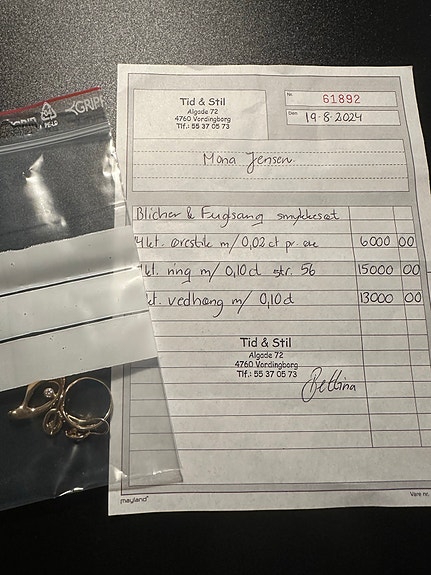 GRIP
PE-LD
Tid & Stil
Algade 72
4760 Vordingborg
Tlf.: 55 37 05 73
Nr. 61892
Dato 19-8-2024
Mona Jensen
Blicher & Fuglsang smykkesæt
kt. ørestik m/ 0,02 ct pr. øre 6000 00
kt. ring m/ 0,10 ct str. 56 15000 00
kt. vedhæng m/ 0,10 ct 13000 00
Tid & Stil
Algade 72
4760 Vordingborg
Tlf.: 55 37 05 73
Bettina
mayland
Vare nr.